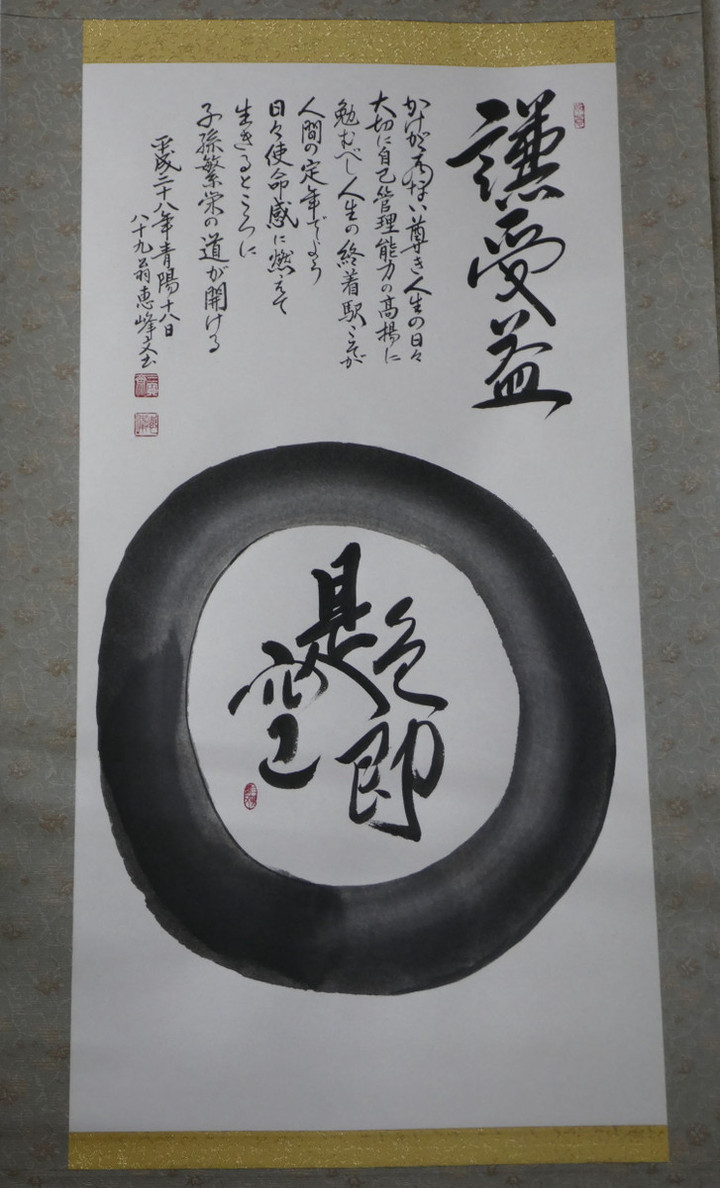 謙受益
かけがえのない尊き人生の日々
大切に自己管理能力の高揚に
勉むべし人生の終着駅こそが
人間の定年でよう
日々使命感に燃えて
生きるところに
子孫繁栄の道が開ける
平成二十八年青陽十八日
八十九翁恵峰文书
色即
是空